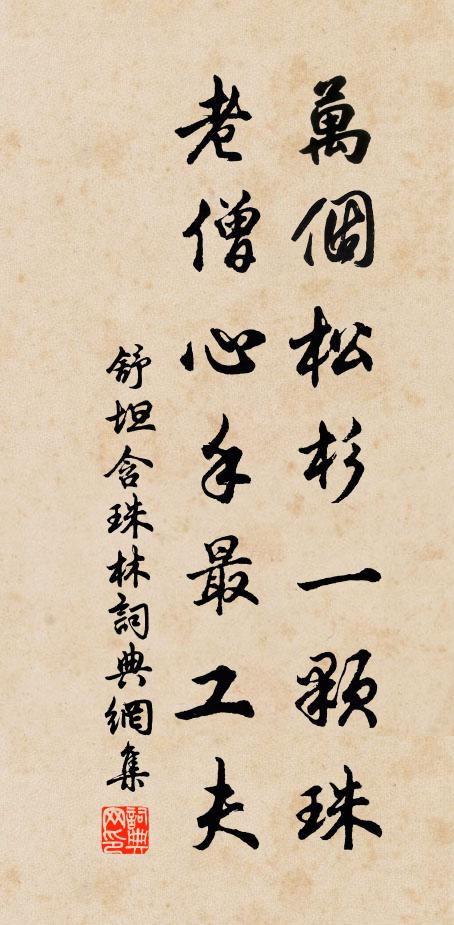 萬個松杉一顆珠
老僧心手最工夫
舒坦含珠林詞典網集
詞典网印